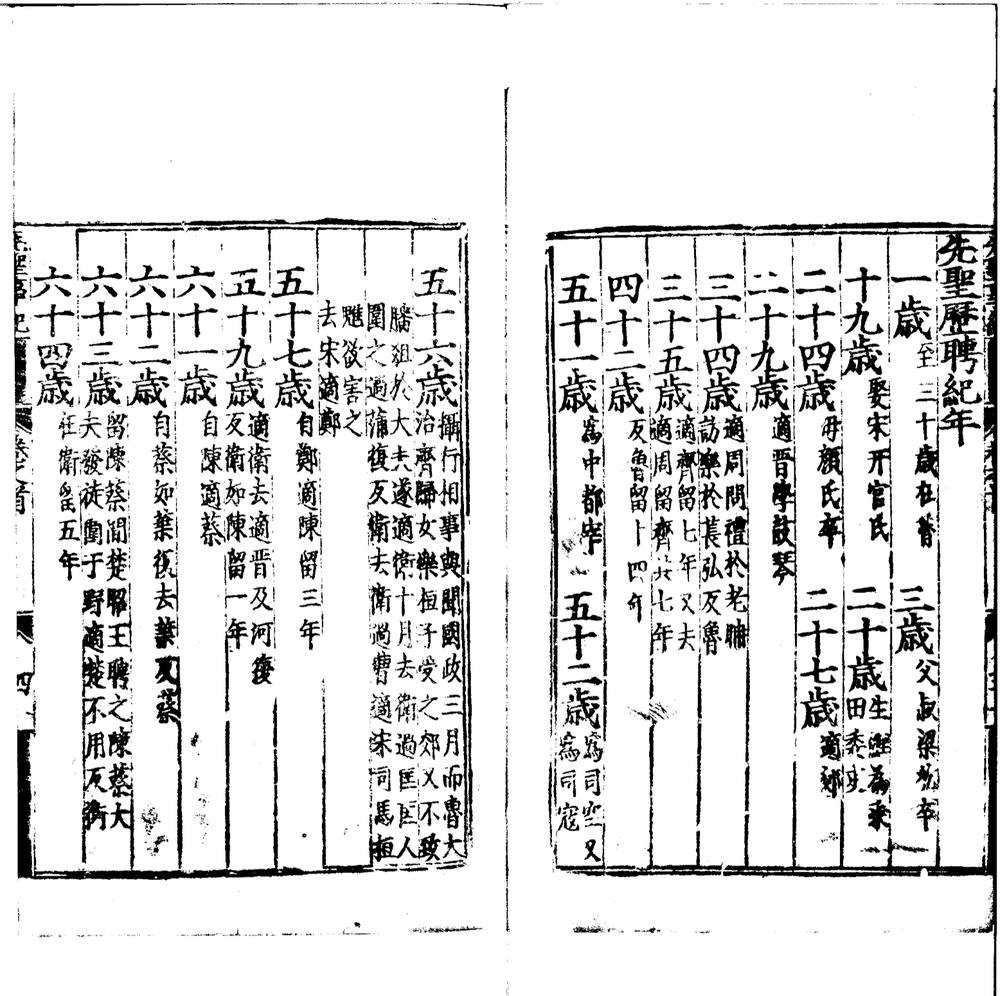 先聖歷聘紀年
一歲至三十歲在魯 三歲父叔梁紇卒
十九歲娶宋幵官氏 二十歲生鯉為乘田委吏
二十四歲母顏氏卒 二十七歲適郯
二十九歲適晉學鼓琴
三十四歲適周問禮於老聃訪樂於萇弘反魯
三十五歲適齊留七年又夫適周留齊共七年
四十二歲反魯留十四年
五十一歲為中都宰 五十二歲為司空又為司寇
五十六歲攝行相事與聞國政三月而魯大治齊歸女樂桓子受之郊又不致
膰俎於大夫遂適衛十月去衛過匡匡人圍之過蒲復反衛去衛過曹適宋司馬桓
魋欲害之去宋適鄭
五十七歲自鄭適陳留三年
五十九歲適衛去適晉及河復反衛如陳留一年
六十一歲自陳適蔡
六十二歲自蔡如葉復去葉反蔡
六十三歲留陳蔡間楚昭王聘之陳蔡大夫發徒圍于野適楚不用反衛
六十四歲在衛留五年
四